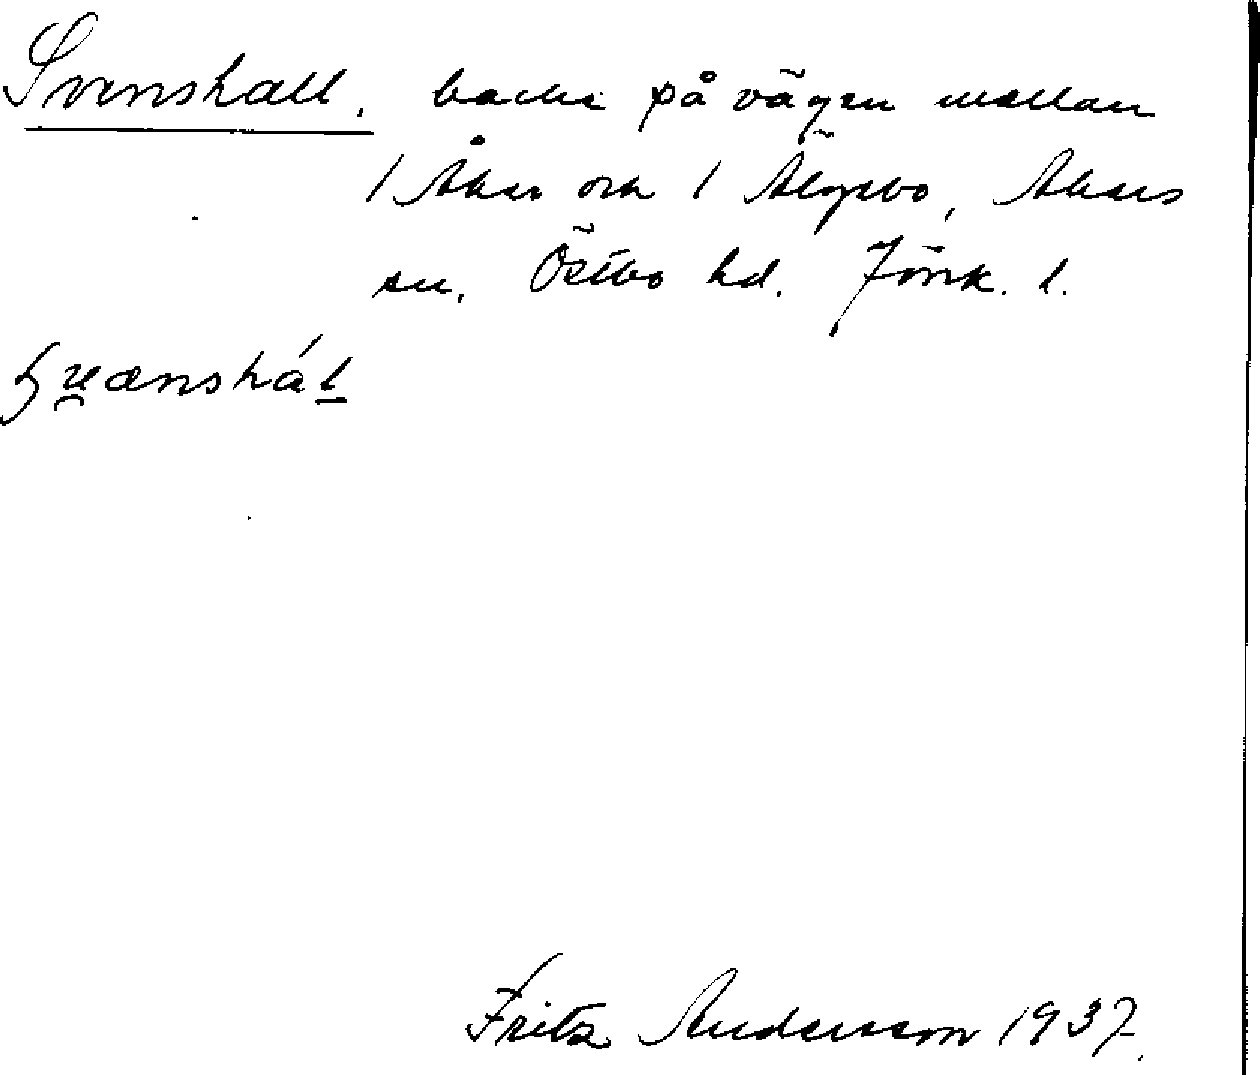 Svenshall. backe på vägen mellan
1 Åker och 1 Älgebo, Åkers
sn. Östbo hd. Jönk. l.
Fritz Andersson 1937.